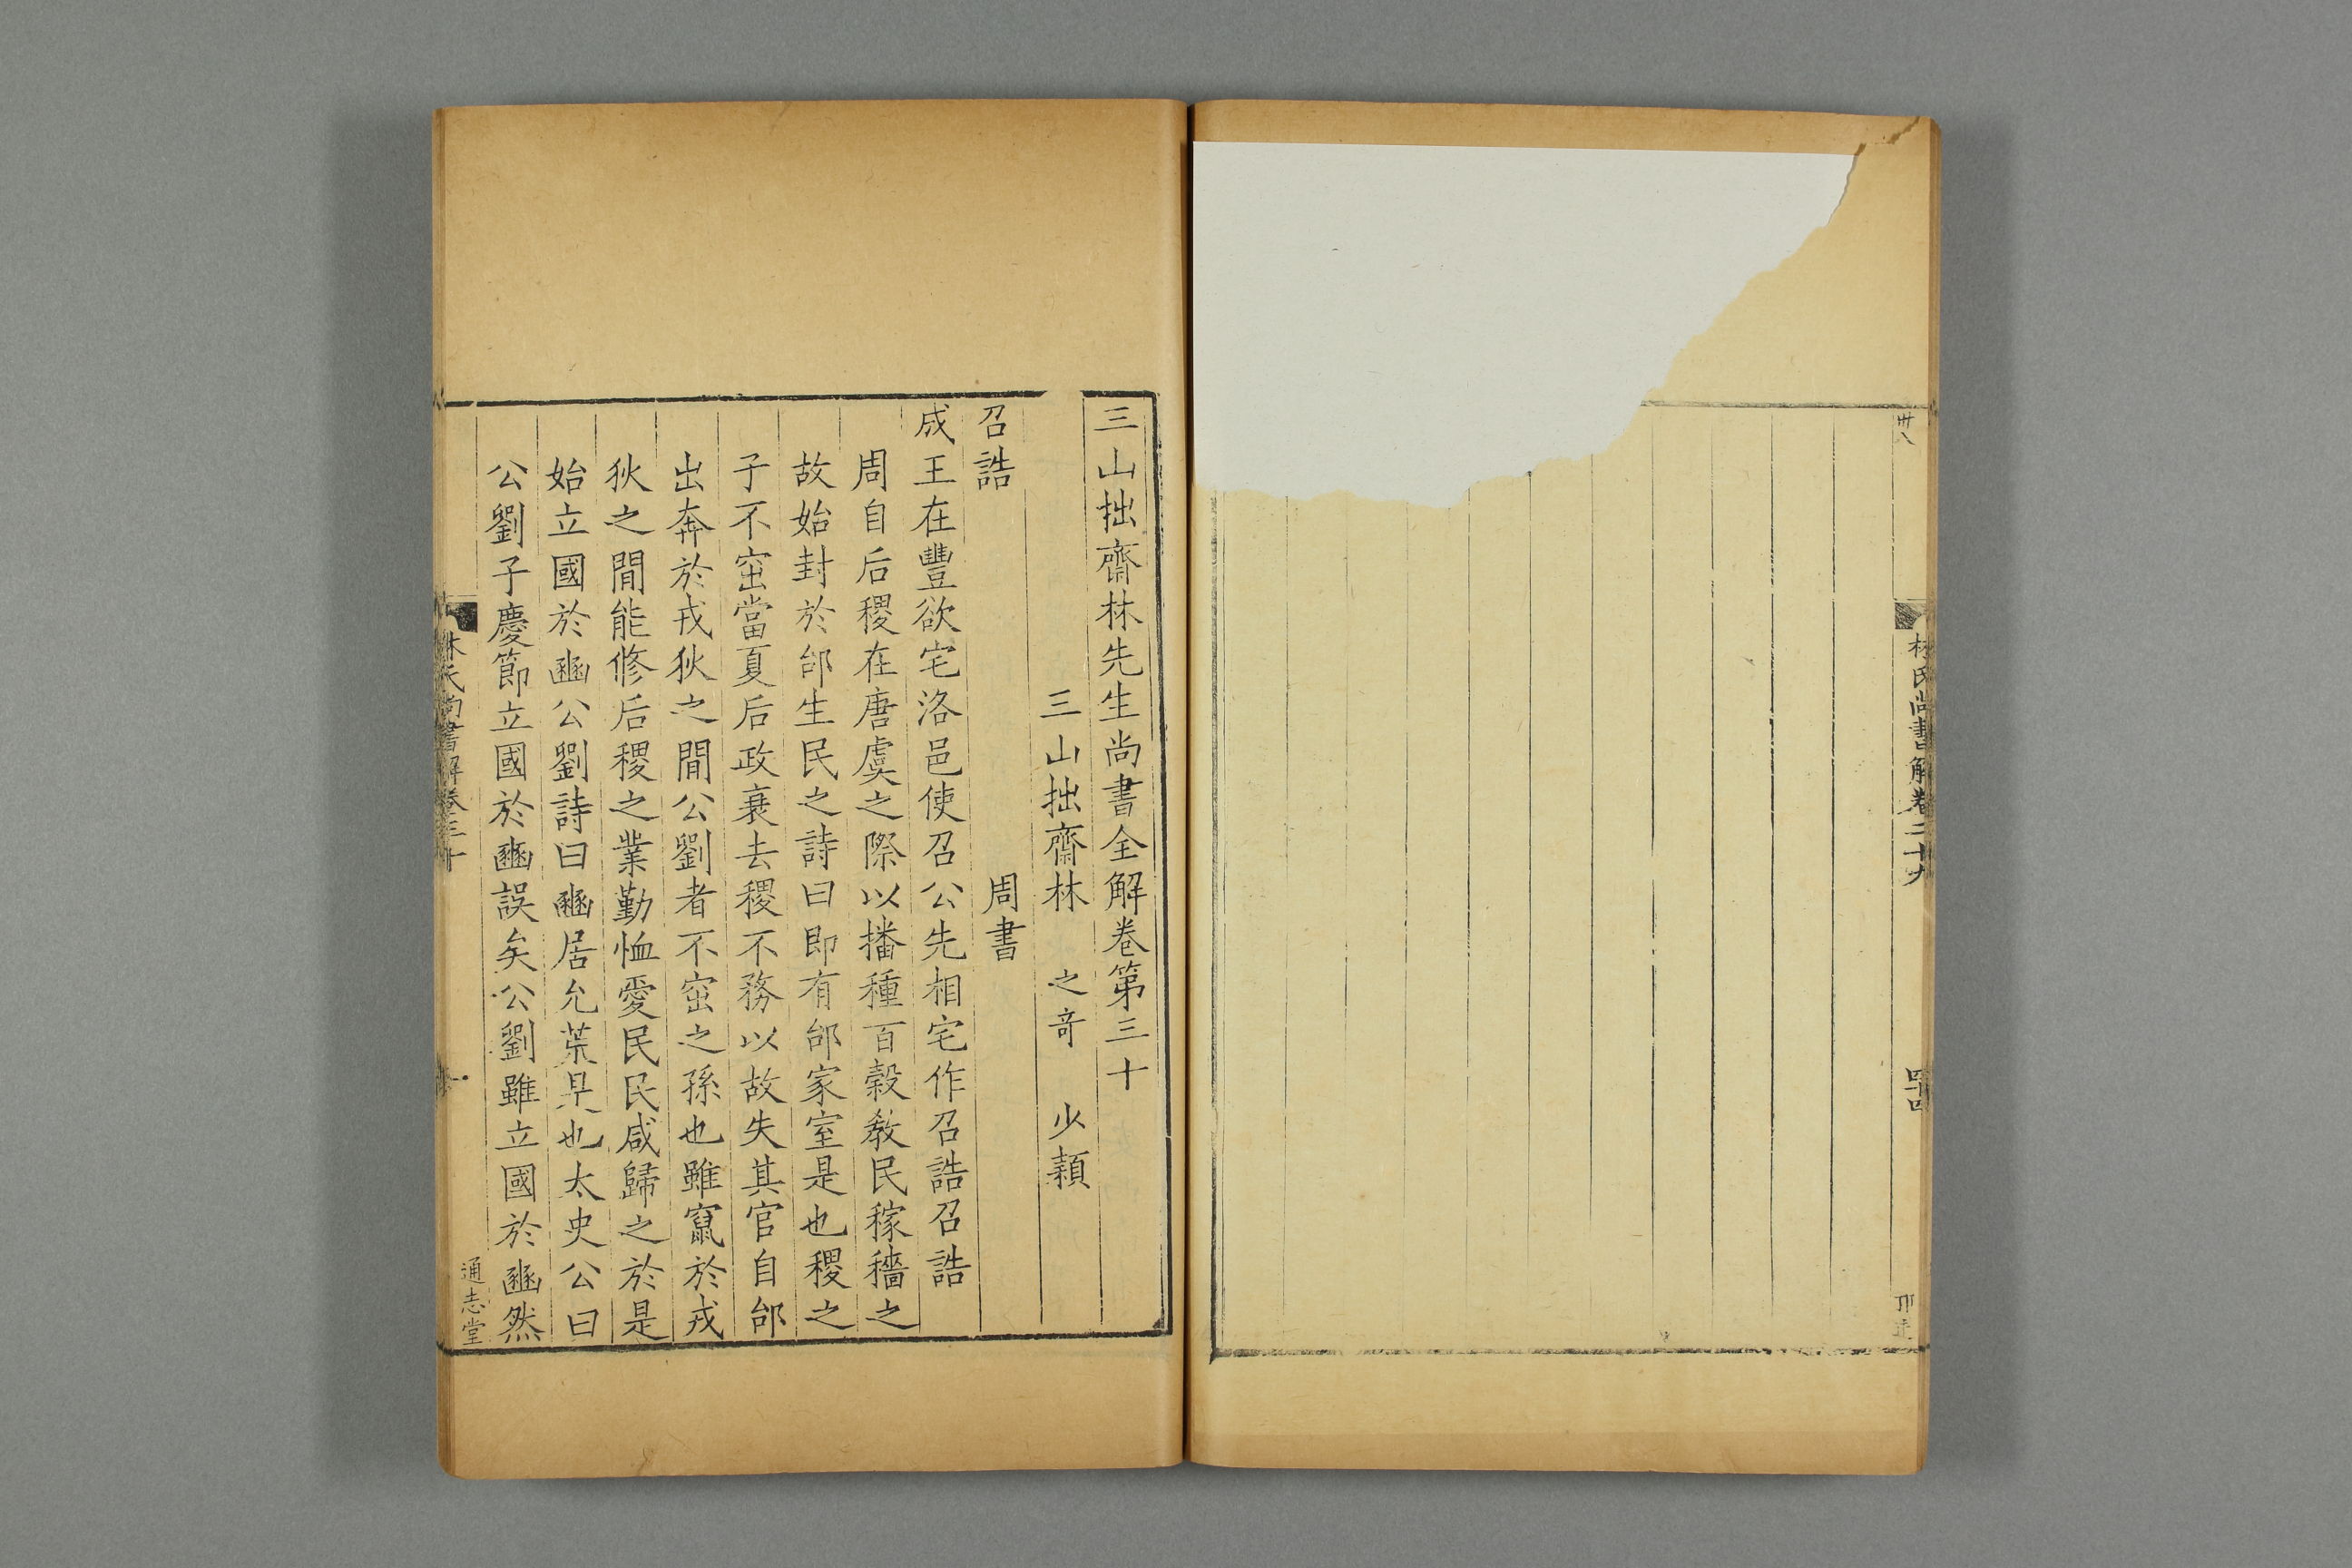 林氏尚書解卷二十九
四十四
三山拙齋林先生尚書全解卷第三十
三山拙齋林 之奇 少穎
召誥 周書
成王在豐欲宅洛邑使召公先相宅作召誥召誥
周自后稷在唐虞之際以播種百穀敎民稼穡之
故始封於邰生民之詩曰即有邰家室是也稷之
子不窋當夏后政衰去稷不務以故失其官自邰
出奔於戎狄之間公劉者不窋之孫也雖竄於戎
狄之間能修后稷之業勤恤愛民民咸歸之於是
始立國於豳公劉詩曰豳居允荒是也太史公曰
公劉子慶節立國於豳誤矣公劉雖立國於豳然
林氏尚書解卷三十
一
通志堂